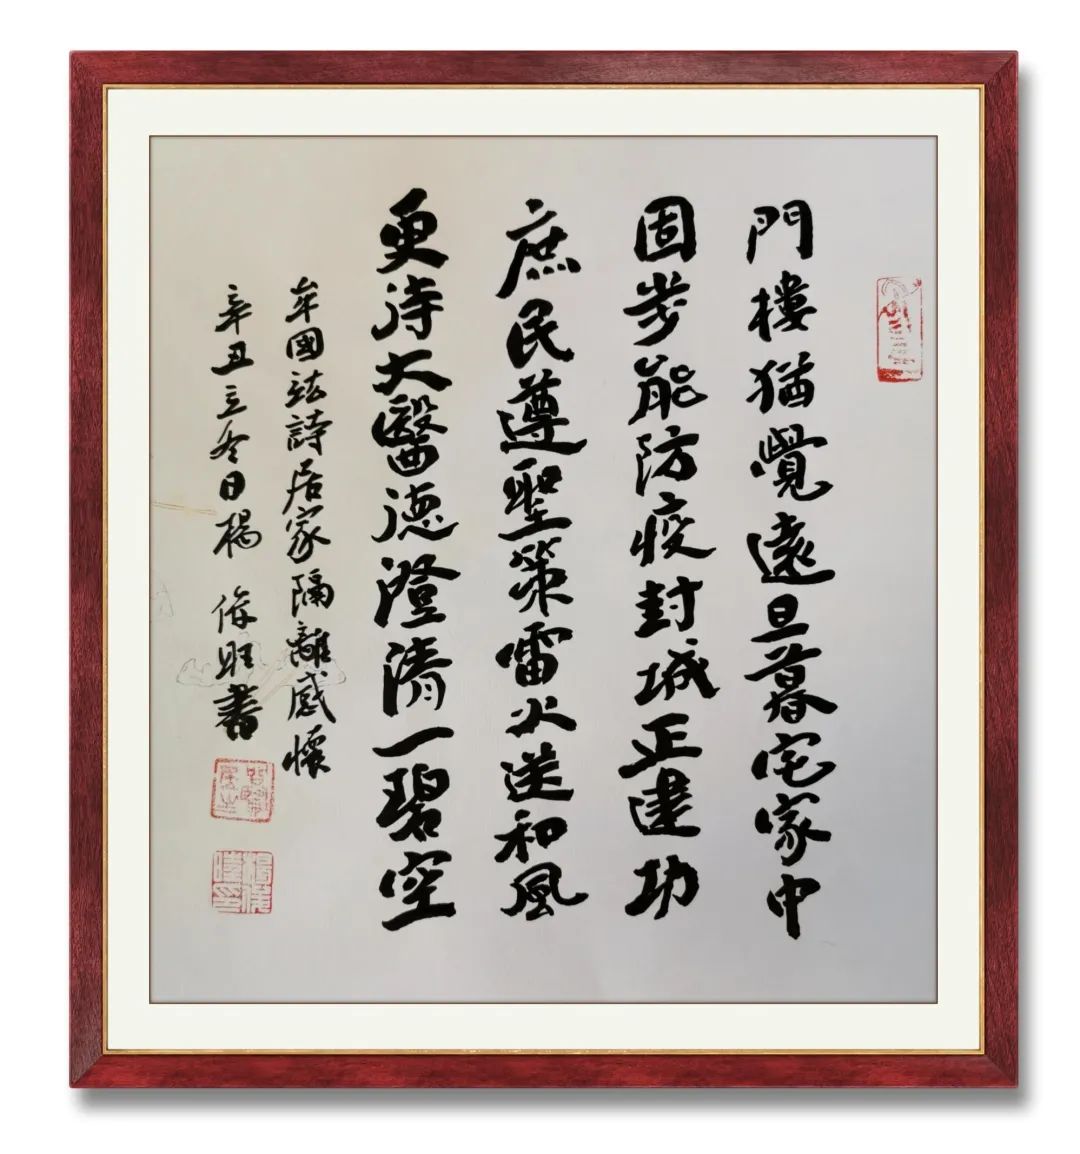 門樓猶覺遠旦暮宅家中
固步能防疫封城正建功
庶民遵聖策雷火送和風
更待大醫德澄清一碧空
牟國法詩居家隔離感懷
辛丑立冬日楊旺書